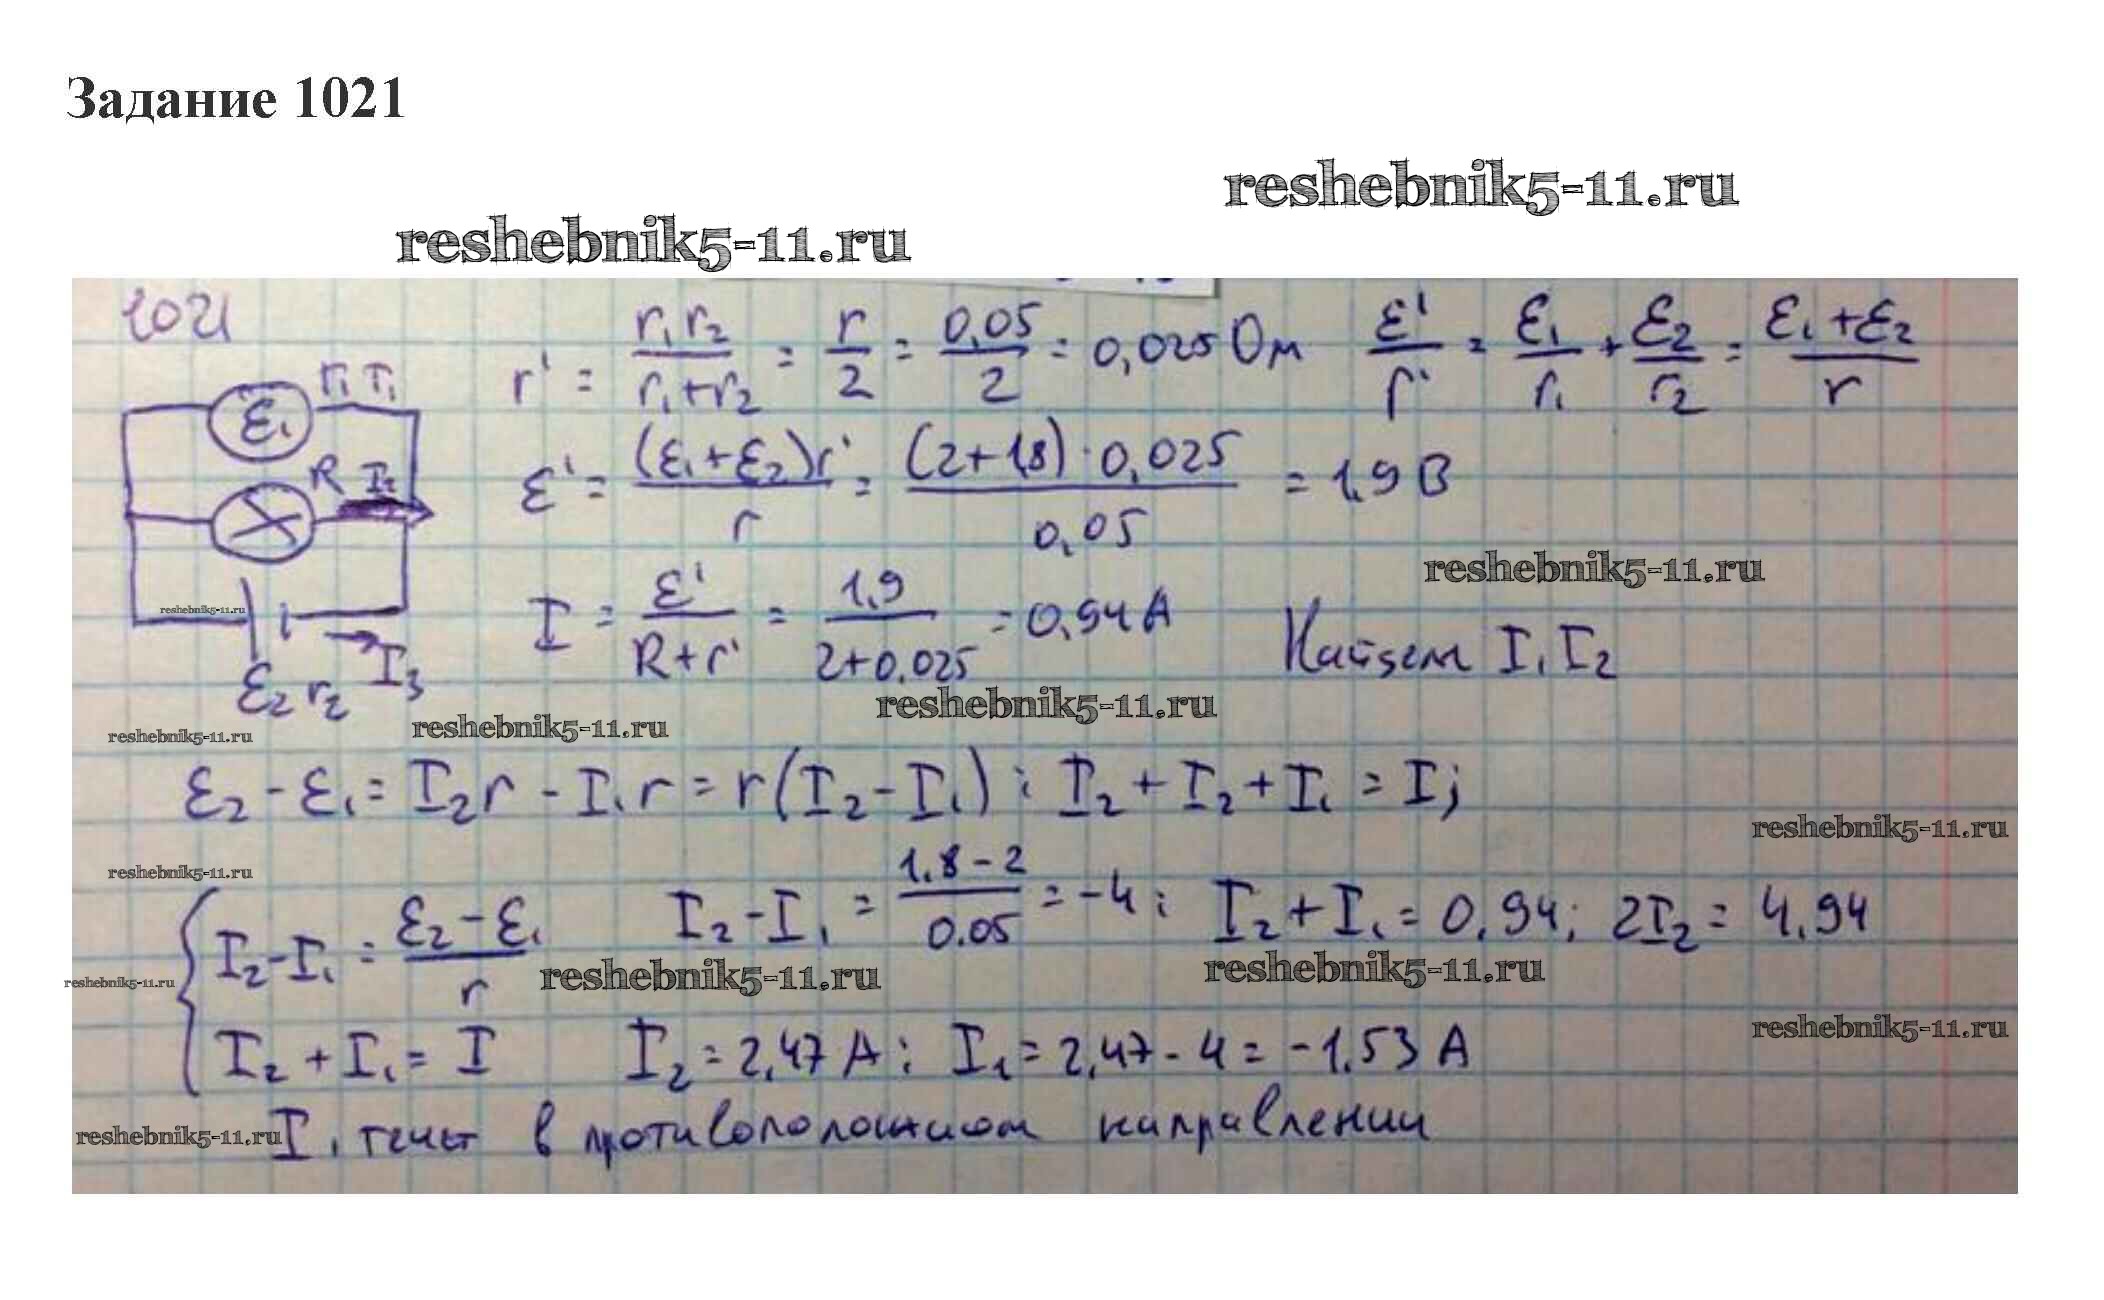 Задание 1021
reshebnik5-11.ru
reshebnik5-11.ru
1021
r' = r₁r₂/(r₁+r₂) = r/2 = 0,05/2 = 0,025 Ом   ε'/r' = ε₁/r₁ + ε₂/r₂ = (ε₁+ε₂)/r
ε₁ r₁ I₁
ε' = (ε₁+ε₂)r'/r = (2+1,8)·0,025/0,05 = 1,9 В
R I₂
reshebnik5-11.ru
reshebnik5-11.ru
I = ε'/(R+r') = 1,9/(2+0,025) = 0,94 А   Найдем I₁ I₂
ε₂ r₂ I₃
reshebnik5-11.ru
reshebnik5-11.ru
reshebnik5-11.ru
ε₂ - ε₁ = I₂r - I₁r = r(I₂ - I₁); I₂ + I₂ + I₁ = I;
reshebnik5-11.ru
reshebnik5-11.ru
{ I₂ - I₁ = (ε₂ - ε₁)/r   I₂ - I₁ = (1,8 - 2)/0.05 = -4; I₂ + I₁ = 0,94; 2I₂ = 4,94
reshebnik5-11.ru
reshebnik5-11.ru
reshebnik5-11.ru
reshebnik5-11.ru
I₂ + I₁ = I   I₂ = 2,47 А; I₁ = 2,47 - 4 = -1,53 А
reshebnik5-11.ru
I₁ течет в противоположном направлении